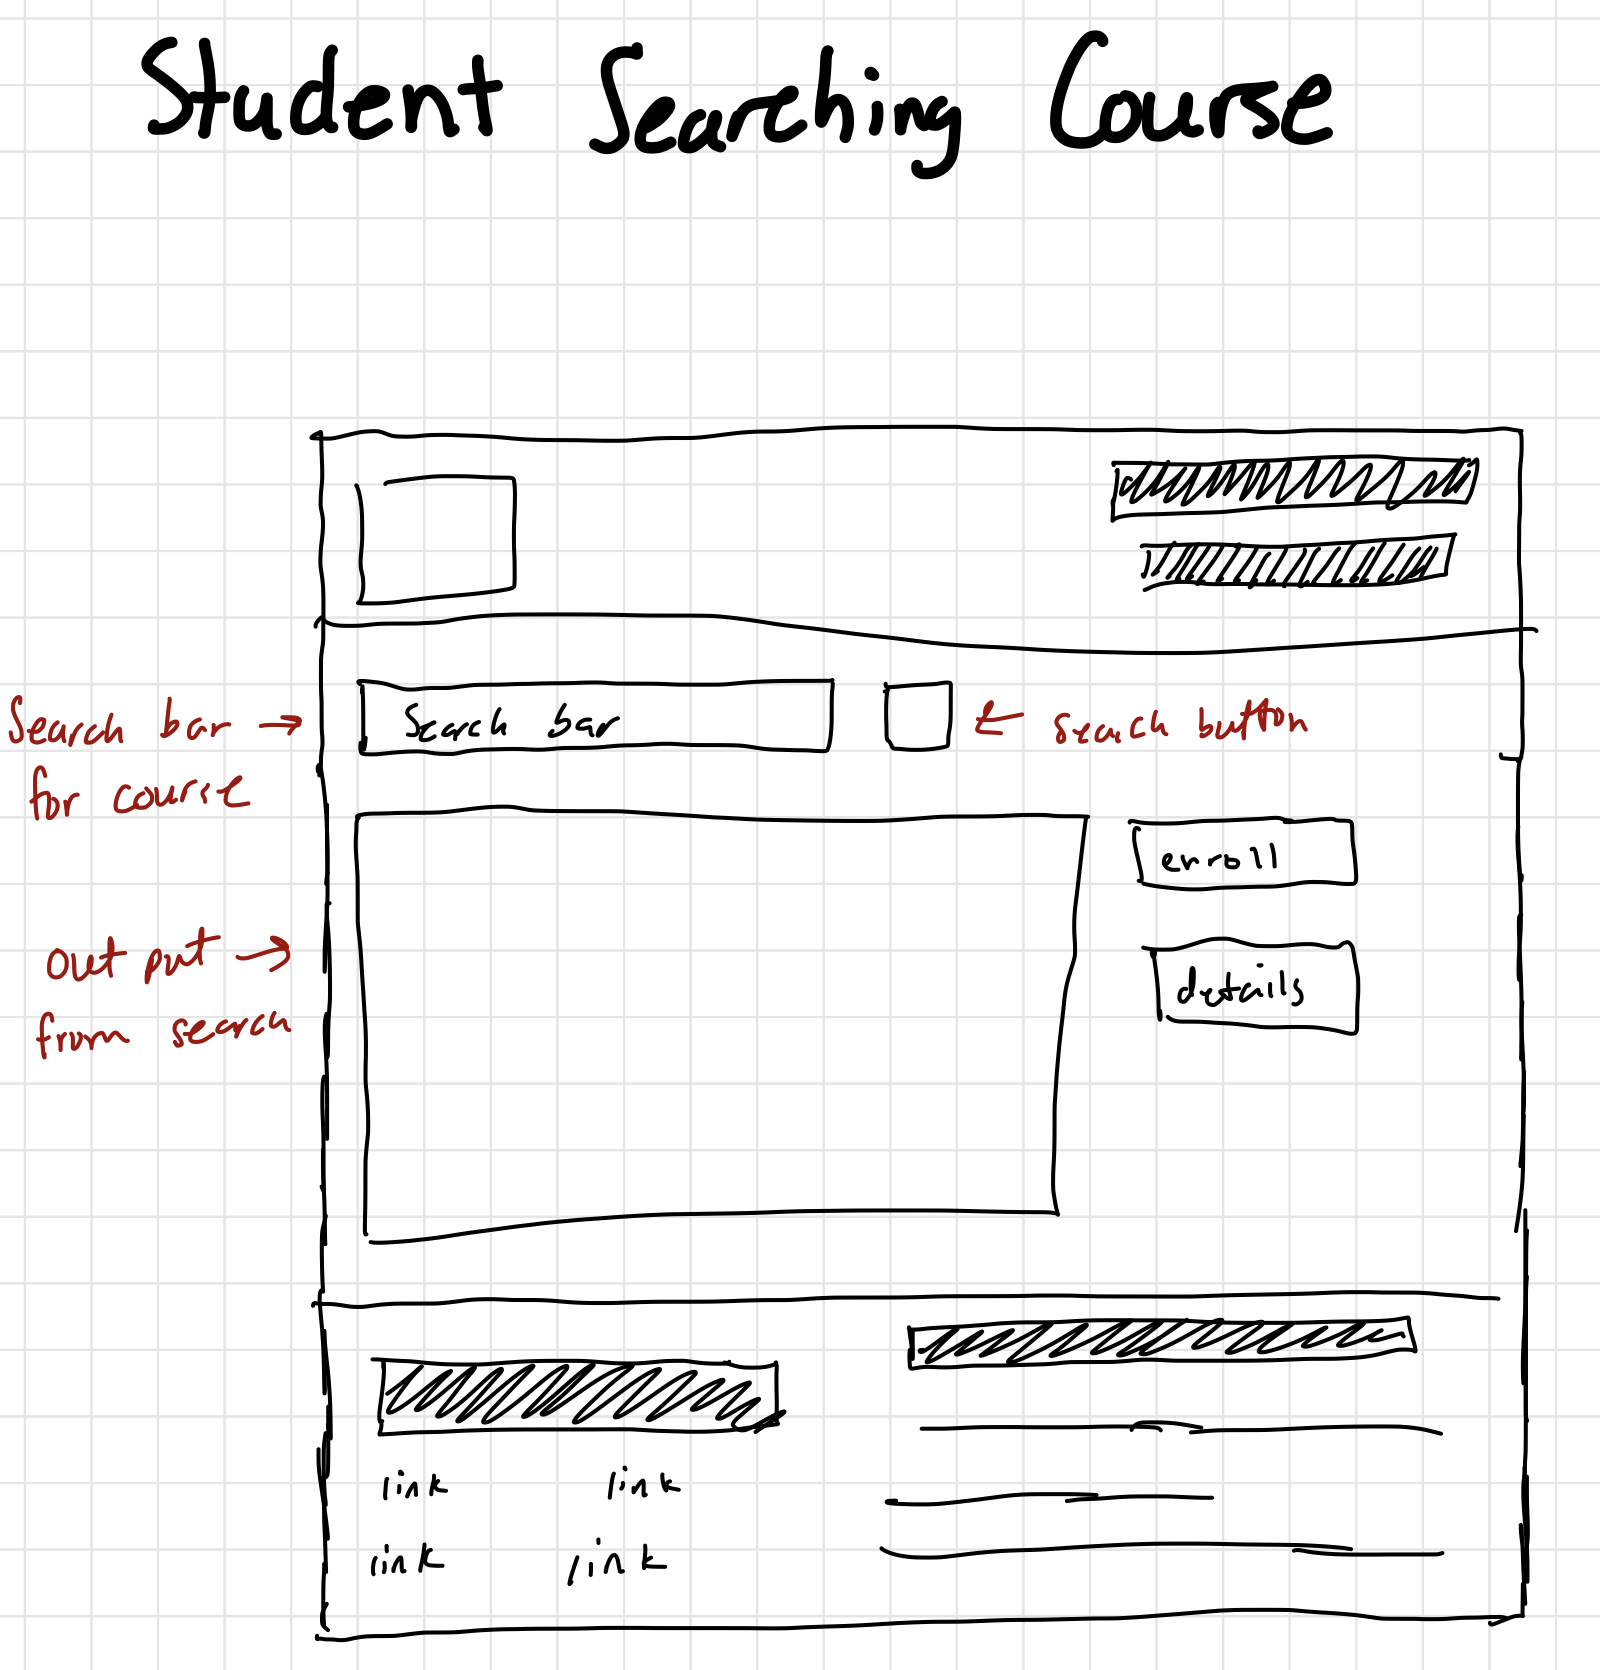 Student Searching Course
Search bar
for course
Search bar
search button
enroll
out put
from search
details
link link
link link